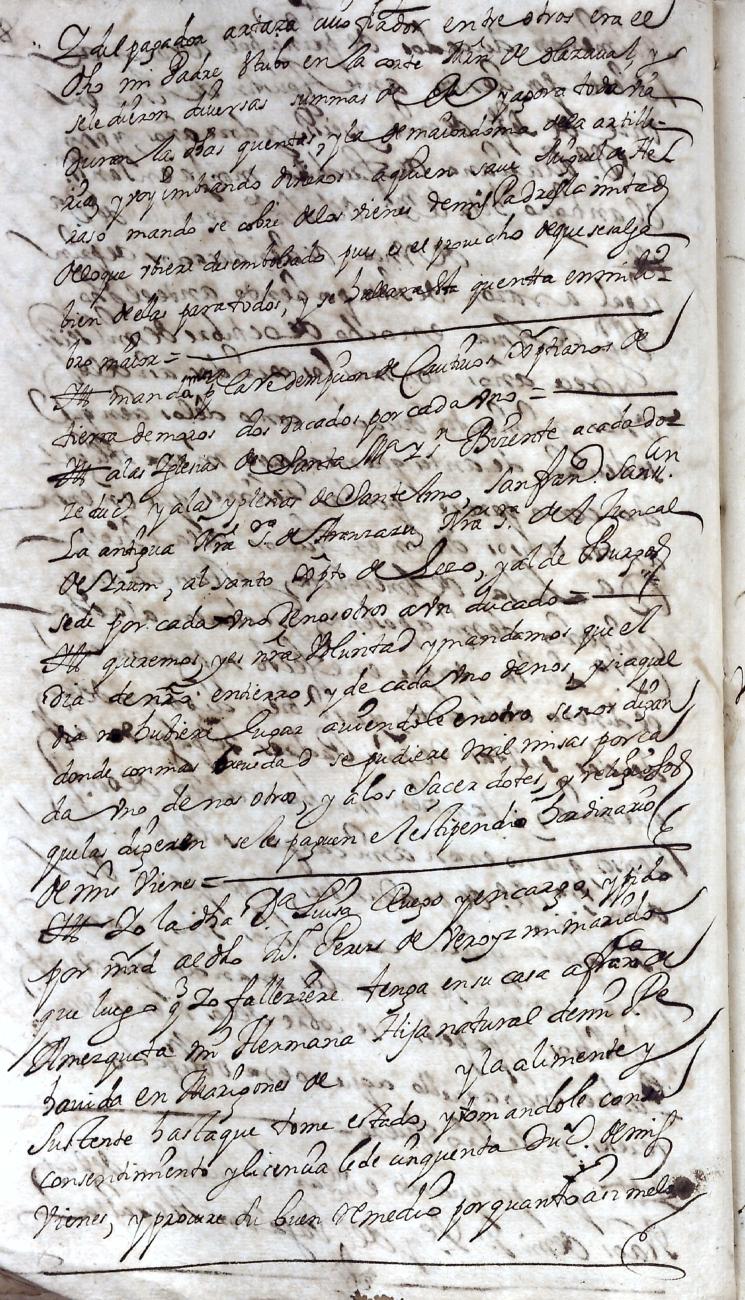 Z del pagador arteaga cuio fiador entre otros era el
dho mi Padre stubo en la corte Mrn de olazaual, y
sele dieron diuersas summas de y agora toda via
duran las dhas quentas, y la de maiordomia dela artille-
ria, y voy imbiando dineros aquien saue Miguel de He
raso mando se cobre delos vienes demis Padres la mitad
de lo que vbiere desembolsado pues es el prouecho deque se salga
bien dellas para todos, y se hallara dha quentta en mi li-
bro maior =
Itt manda para la redempcion de Cautiuos Xptianos de
tierra de moros dos ducados por cada vno =
Itt alas Iglesias de Santa Ma y sn Bizente a cada doz
ze ducs y alas yglesias de Santelmo, San frano. San Sn
La antigua Nra Sra de Aranzazu, Nra Sra del Juncal
de Irum, al santo Xpto de Lezo, y al de Burgos
sede por cada vno de nosotros a vn ducado =
Itt queremos, y es nra Voluntad y mandamos que el
dia de nro entierro, y de cada vno de nos, y si aquel
dia no hubiere lugar auiendole en otro se nos digan
donde con mas breuedad se pudiere mil misas por ca
da vno de nos otros, y a los sacerdotes, y religiosos
que las digeren se les paguen el estipendio hordinario
de mis Vienes =
Itt Yo la dha Da Luisa Ruego y encargo, y pido
por mrd al dho Mn Perez de Veroyz mi marido
que luego q Yo falleziere tenga en su casa a franca de
Amezqueta mi Hermana Hija natural de mi Pe
hauida en Marigones de y la alimente y
sustente hasta que tome estado, y tomandole con su
consentimiento y licencia le de cinquenta Ducs. de mis
Vienes, y procure su buen Remedio por quanto asi melo